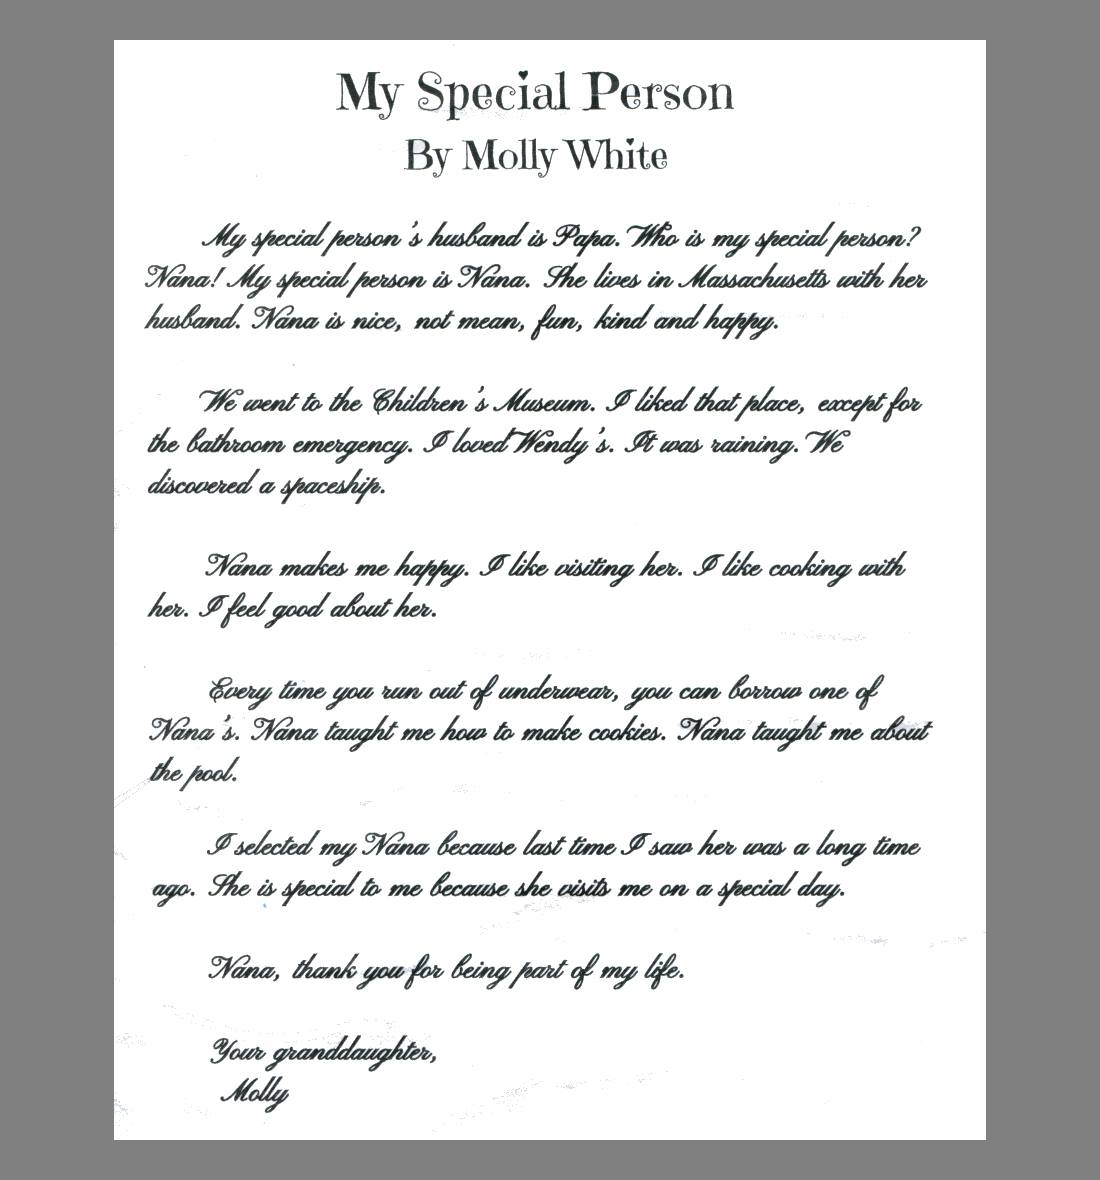 My Special Person
By Molly White
My special person's husband is Papa. Who is my special person?
Nana! My special person is Nana. She lives in Massachusetts with her
husband. Nana is nice, not mean, fun, kind and happy.
We went to the Children's Museum. I liked that place, except for
the bathroom emergency. I loved Wendy's. It was raining. We
discovered a spaceship.
Nana makes me happy. I like visiting her. I like cooking with
her. I feel good about her.
Every time you run out of underwear, you can borrow one of
Nana's. Nana taught me how to make cookies. Nana taught me about
the pool.
I selected my Nana because last time I saw her was a long time
ago. She is special to me because she visits me on a special day.
Nana, thank you for being part of my life.
Your granddaughter,
Molly